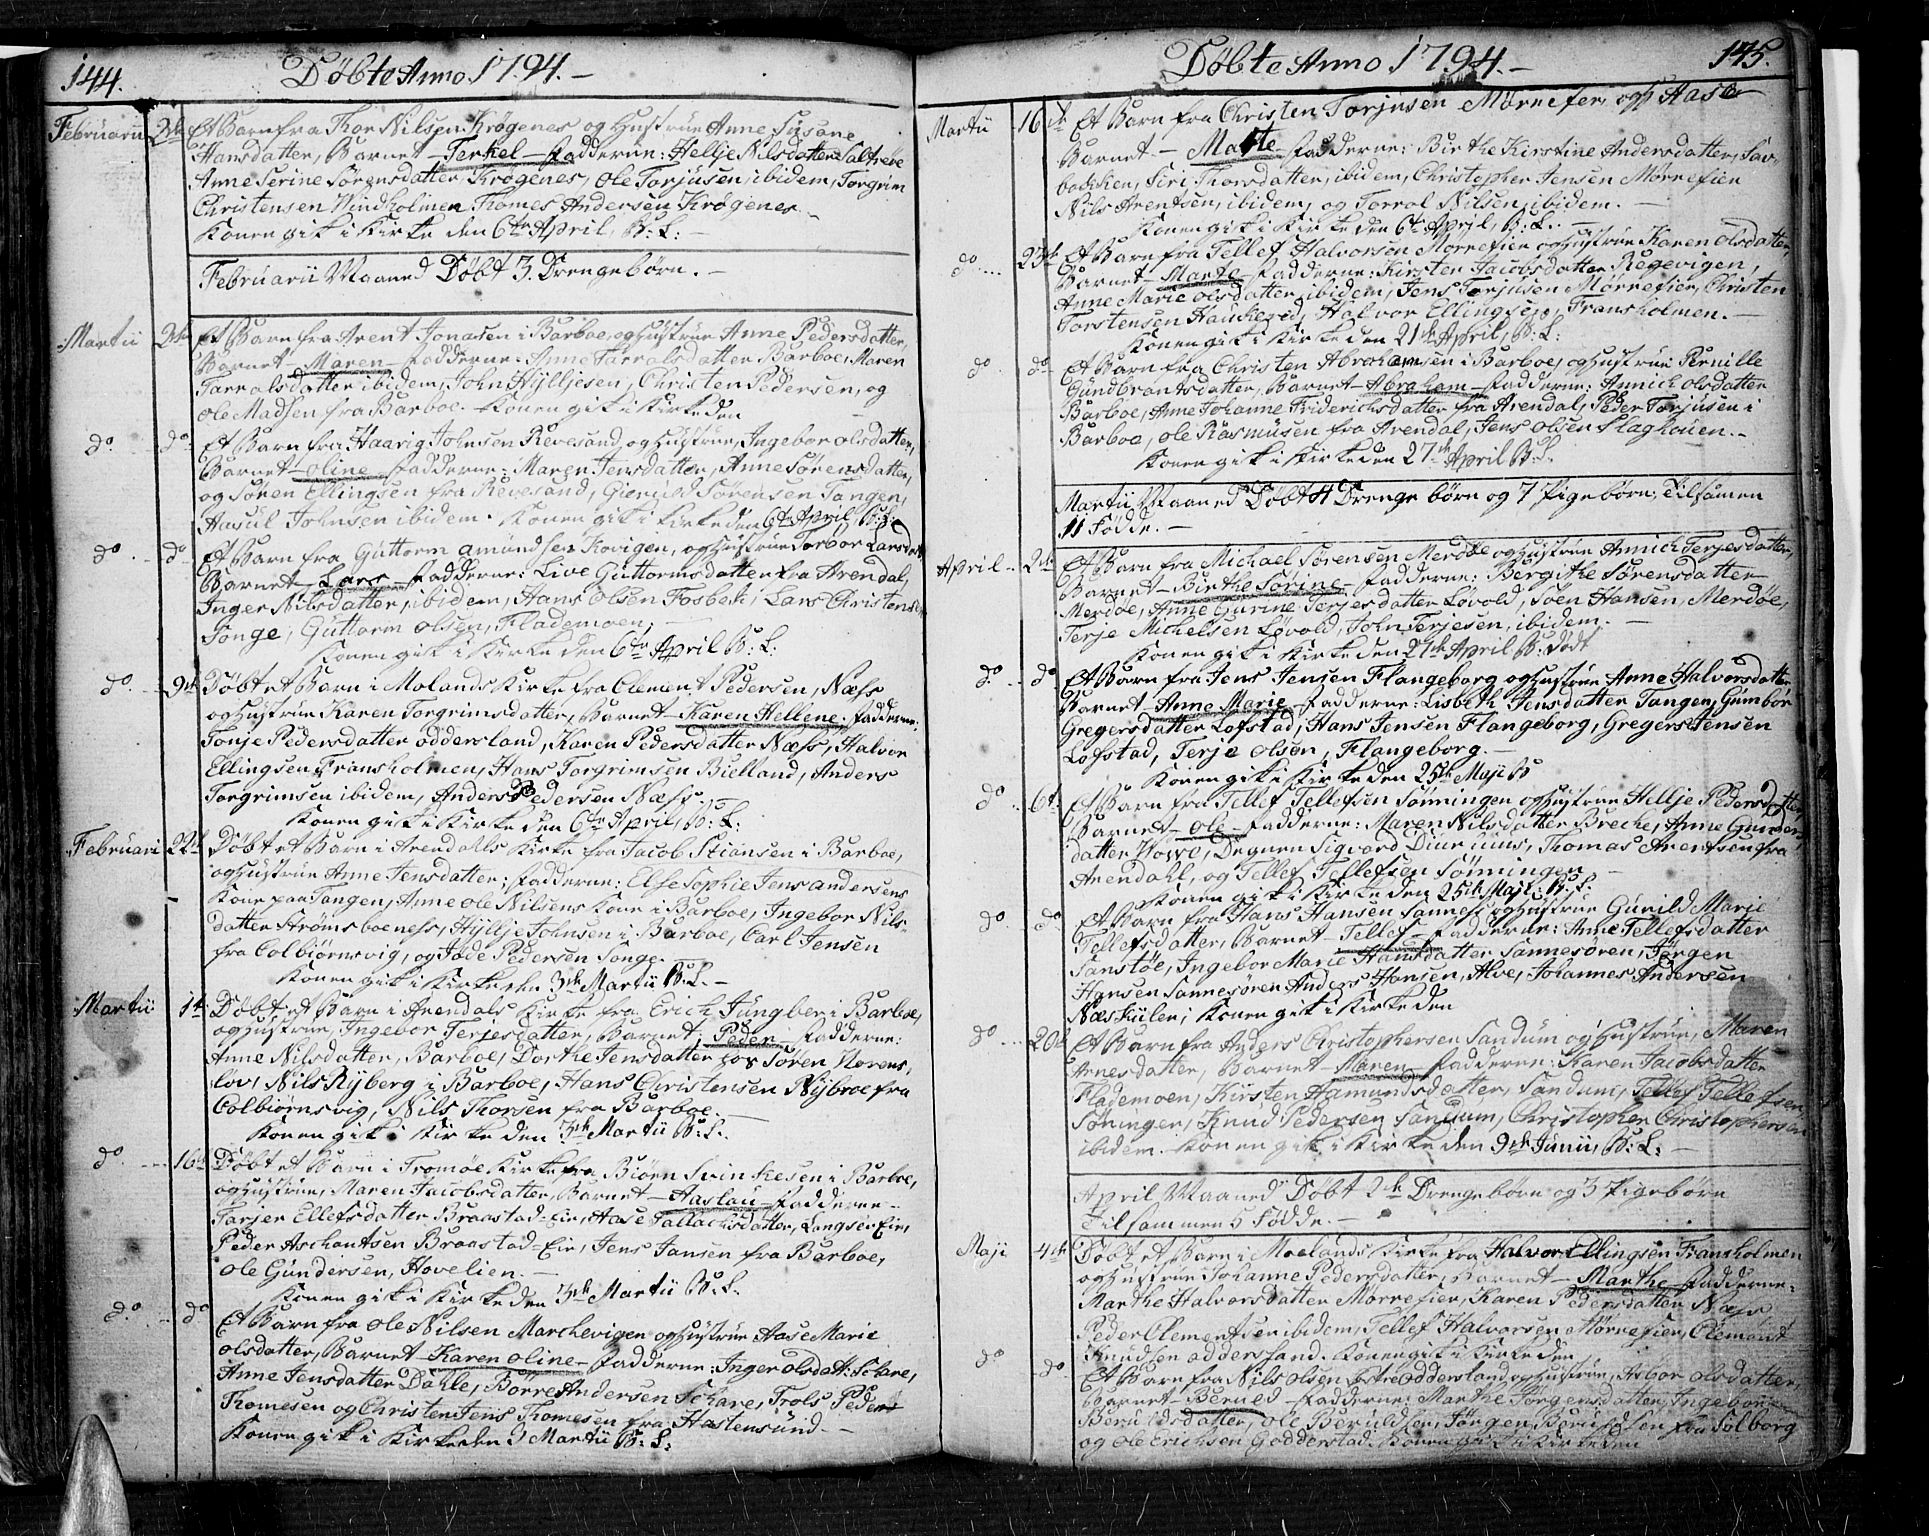 144. Döbte Anno 1794.-
Februarii 2de Et Barn fra Thor Nilsen Krögenes og Hustrue Anne Susane
Hansdatter, Barnet - Terkel - Fadderne: Hellje Nilsdatter
Anne Serine Sörensdatter Krögenes, Ole Torjusen, ibidem, Torgrim
Christensen Windholmen Thomes Andersen Krögenes -
Konen gik i Kirke den 6te April, B: L: -
Februarii Maaned Döbt 3. Drengebörn. -
Martii 2de Et Barn fra Arent Jonasen i Barboe, og Hustrue Anne Pedersdatter,
Barnet - Maren - Fadderne: Anne Tarralsdatter Barboe, Maren
Tarralsdatter ibidem, John Hylljesen, Christen Pedersen, og
Ole Madsen fra Barboe. Konen gik i Kirke den
do. do Et Barn fra Haavig Johnsen Revesand, og Hustrue, Ingebor Olsdatter,
Barnet - Oline - Fadderne: Maren Jensdatter, Anne Sörensdatter
og Sören Ellingsen fra Revesand, Gieruld Sörensen Tangen,
Aasul Johnsen ibidem. Konen gik i Kirke den 6te April, B: L:
do. do Et Barn fra Guttorm Amundsen Kovigen, og Hustrue Torbor Larsdatt
Barnet - Lars - Fadderne: Live Guttormsdatter fra Arendal,
Inger Nilsdatter, ibidem, Hans Olsen Fosbek, Lars Christensen
Songe, Guttorm Olsen, Flademoen, -
Konen gik i Kirke den 6te April B: L:
do. 9de Döbt et Barn i Molands Kirke fra Clement Pedersen, Næss
og Hustrue Karen Torgrimsdatter, Barnet - Karen Hellene. Fadderne:
Tonje Pedersdatter Oddersland, Karen Pedersdatter Næss, Halvor
Ellingsen Fransholmen, Hans Torgrimsen Bielland, Anders
Torgrimsen ibidem, Anders Pedersen Næss.
Konen gik i Kirke den 6te April, B: L:
Februari 22de Döbt et Barn i Arendalls Kirke fra Jacob Stiansen i Barboe,
og Hustrue Anne Jensdatter; Fadderne: Else Sophie Jens Andersens
Kone paa Tangen, Anne Ole Nilsens Kone i Barboe, Ingebor Nils-
datter Strömsboeness, Hyllje Johnsen i Barboe, Carl Jensen
fra Colbiörnsvig, og Jöde Pedersen Songe. -
Konen gik i Kirke den 3de Martii B: L. -
Martii 1te Döbt et Barn i Arendals Kirke fra Erich Jungber i Barboe,
og Hustrue, Ingebor Terjesdatter, Barnet, Peder - Fadderne:
Anne Nilsdatter, Barboe, Dorthe Jensdatter hos Sören
Nils Ryberg i Barboe, Hans Christensen Nybroe fra
Colbiörnsvig, Nils Thorsen fra Barboe.
Konen gik i Kirke den 3de Martii B: L: -
do. 16de Döbt et Barn i Tromöe Kirke fra Biörn Svinkesen i Barboe,
og Hustrue, Maren Jacobsdatter, Barnet - Aaslau - Fadderne -
Tarjer Ellefsdatter Braastad-Eie, Aase Tallachsdatter, Langsev Eie,
Peder Aschantsen Braastad-Eie, Jens Jansen fra Barboe,
Ole Gundersen, Hovelien. -
Konen gik i Kirke den 3de Martii B: L.
do. do Et Barn fra Ole Nilsen Marchevigen og Hustrue Aase Marie
Olsdatter, Barnet - Karen Oline - Fadderne: Inger Olsdatt: Schare,
Anne Jensdatter Dahle, Börre Andersen Schare, Trols Peder
Thomesen og Christen Jens Thomesen fra Hastensund. -
Konen gik i Kirke den 3 Martii B: L:
Döbte Anno 1794.- 145.
Martii 16de Et Barn fra Christen Torjusen Mörnefier, og Aase
Barnet - Marte - Fadderne: Birthe Kirstine Andersdatter, Sav-
backken, Siri Thorsdatter, ibidem, Christopher Jensen Mörrefier
Nils Arentsen, ibidem, og Torrol Nilsen, ibidem. -
Konen gik i Kirke den 6te April, B: L. -
do 23de Et Barn fra Tellef Halvorsen Mörrefier og Hustrue Karen Olsdatter,
Barnet - Marte - Fadderne: Kirsten Jacobsdatter, Regevigen,
Anne Marie Olsdatter, ibidem, Jens Torjusen Mörrefier, Christen
Torstensen Haukered, Halvor Ellingsen, Fransholmen. -
Konen gik i Kirke den 21de April, B: L:
do do Et Barn fra Christen Abrahamsen i Barboe, og Hustrue Pernille
Gundbrantsdatter, Barnet - Abraham - Fadderne: Annich Olsdatter
Barboe, Anne Johanne Friderichsdatter fra Arendal, Peder Torjusen i
Barboe, Ole Rasmusen fra Arendal, Jens Olsen Slaghouen. -
Konen gik i Kirke den 27de April B: L.
Martii Maaned Döbt 4 Drenge börn og 7 Pigebörn, Tilsamen
11 Födde. -
April 2de Et Barn fra Michael Sörensen Merdöe og Hustrue Annich Terjesdatter,
Barnet - Birthe Sörine - Fadderne: Bergithe Sörensdatter
Merdöe, Anne Gurine Terjesdatter Lövold, Soen Hansen, Merdöe,
Terje Michelsen Lövold, John Terjesen, ibidem. -
Konen gik i Kirke den 27de April B: Dödt
do. do Et Barn fra Jens Jensen Flangeborg og Hustrue Anne Halvorsdatter
Barnet - Anne Marie - Fadderne: Lisbeth Jensdatter Tangen, Gumbor
Gregersdatter Lofstad, Hans Jensen Flangeborg, Gregers Jensen
Lofstad, Terje Olsen, Flangeborg. -
Konen gik i Kirke den 25de Maji B
do 6te Et Barn fra Tellef Tellefsen Sönningen og Hustrue Hellje Pedersdatter,
Barnet - Ole - Fadderne: Maren Nilsdatter Breche, Anne Gunder
datter Howe, Degnen Sigvard Diuruus, Thomas Arentsen fra
Arendahl, og Tellef Tellefsen Sönningen -
Konen gik i Kirke den 25de Maji. B: L.
do do Et Barn fra Hans Hansen Sannes og Hustrue Gunild Marie
Tellefsdatter, Barnet - Tellef - Fadderne: Anne Tellefsdatter
Sanstöe, Ingebor Marie Hansdatter Sannesören, Jörgen
Hansen Sannesören Anders Hansen, Alve, Johannes Andersen
Næskilen, Konen gik i Kirke den
do 20de Et Barn fra Anders Christophersen Sandum og Hustrue, Maren
Arnesdatter, Barnet - Maren - Fadderne: Karen Jacobsdatter
Flademoen, Kirsten Hamundsdatter, Sandum, Tellef Tellefsen
Söningen, Knud Pedersen Sandum, Christopher Christophersen
ibidem. Konen gik i Kirke den 9de Junii, B: L: -
April Maaned Döbt 2de Drengebörn og 3 Pigebörn
Tilsammen 5 Födde. -
Maji 4de Döbt et Barn i Moelands Kirke fra Halvor Ellingsen Fransholmen
og Hustrue Johanne Pedersdatter, Barnet - Marthe - Fadderne -
Marthe Halvorsdatter Mörrefier, Karen Pedersdatter Næss
Peder Clementsen ibidem, Tellef Halvorsen Mörrefier, Clemont
Knudsen Oddersland. Konen gik i Kirke den
do do Et Barn fra Nils Olsen Oddersland, og Hustrue, Asbor Olsdatter,
Barnet - Beruld - Fadderne: Marthe Jörgensdatter, Ingebor
Beruldsdatter, Ole Beruldsen, Jörgen Beruldsen fra Solborg
og Ole Erichsen Godderstad. Konen gik i Kirke den